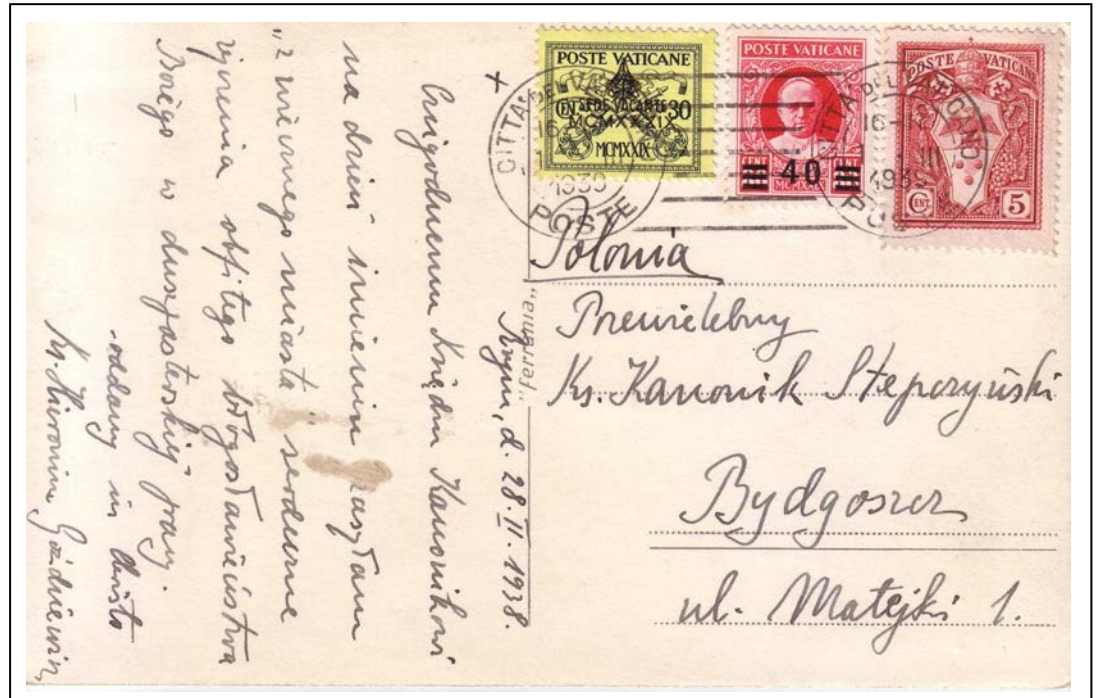 POSTE VATICANE
CENT SEDE VACANTE 30
MCMXXXIX
MCMXXIX
POSTE VATICANE
CENT 40
MCMXXIX
POSTE VATICANE
CENT. 5
CITTA DEL VATICANO
1939
POSTE
CITTA DEL VATICANO
16-
III
1939
Polonia
Przewielebny
Ks. Kanonik Stepczyński
Bydgoszcz
ul. Matejki 1.
"ferrania"
Rzym, d. 28.II.1938.
+
Czcigodnemu Księdzu Kanonikowi
na dzień imienin zasyłam
"z wiecznego miasta" serdeczne
życzenia obfitego błogosławieństwa
Bożego w duszpasterskiej pracy.
oddany in Christo
Ks. Hieronim